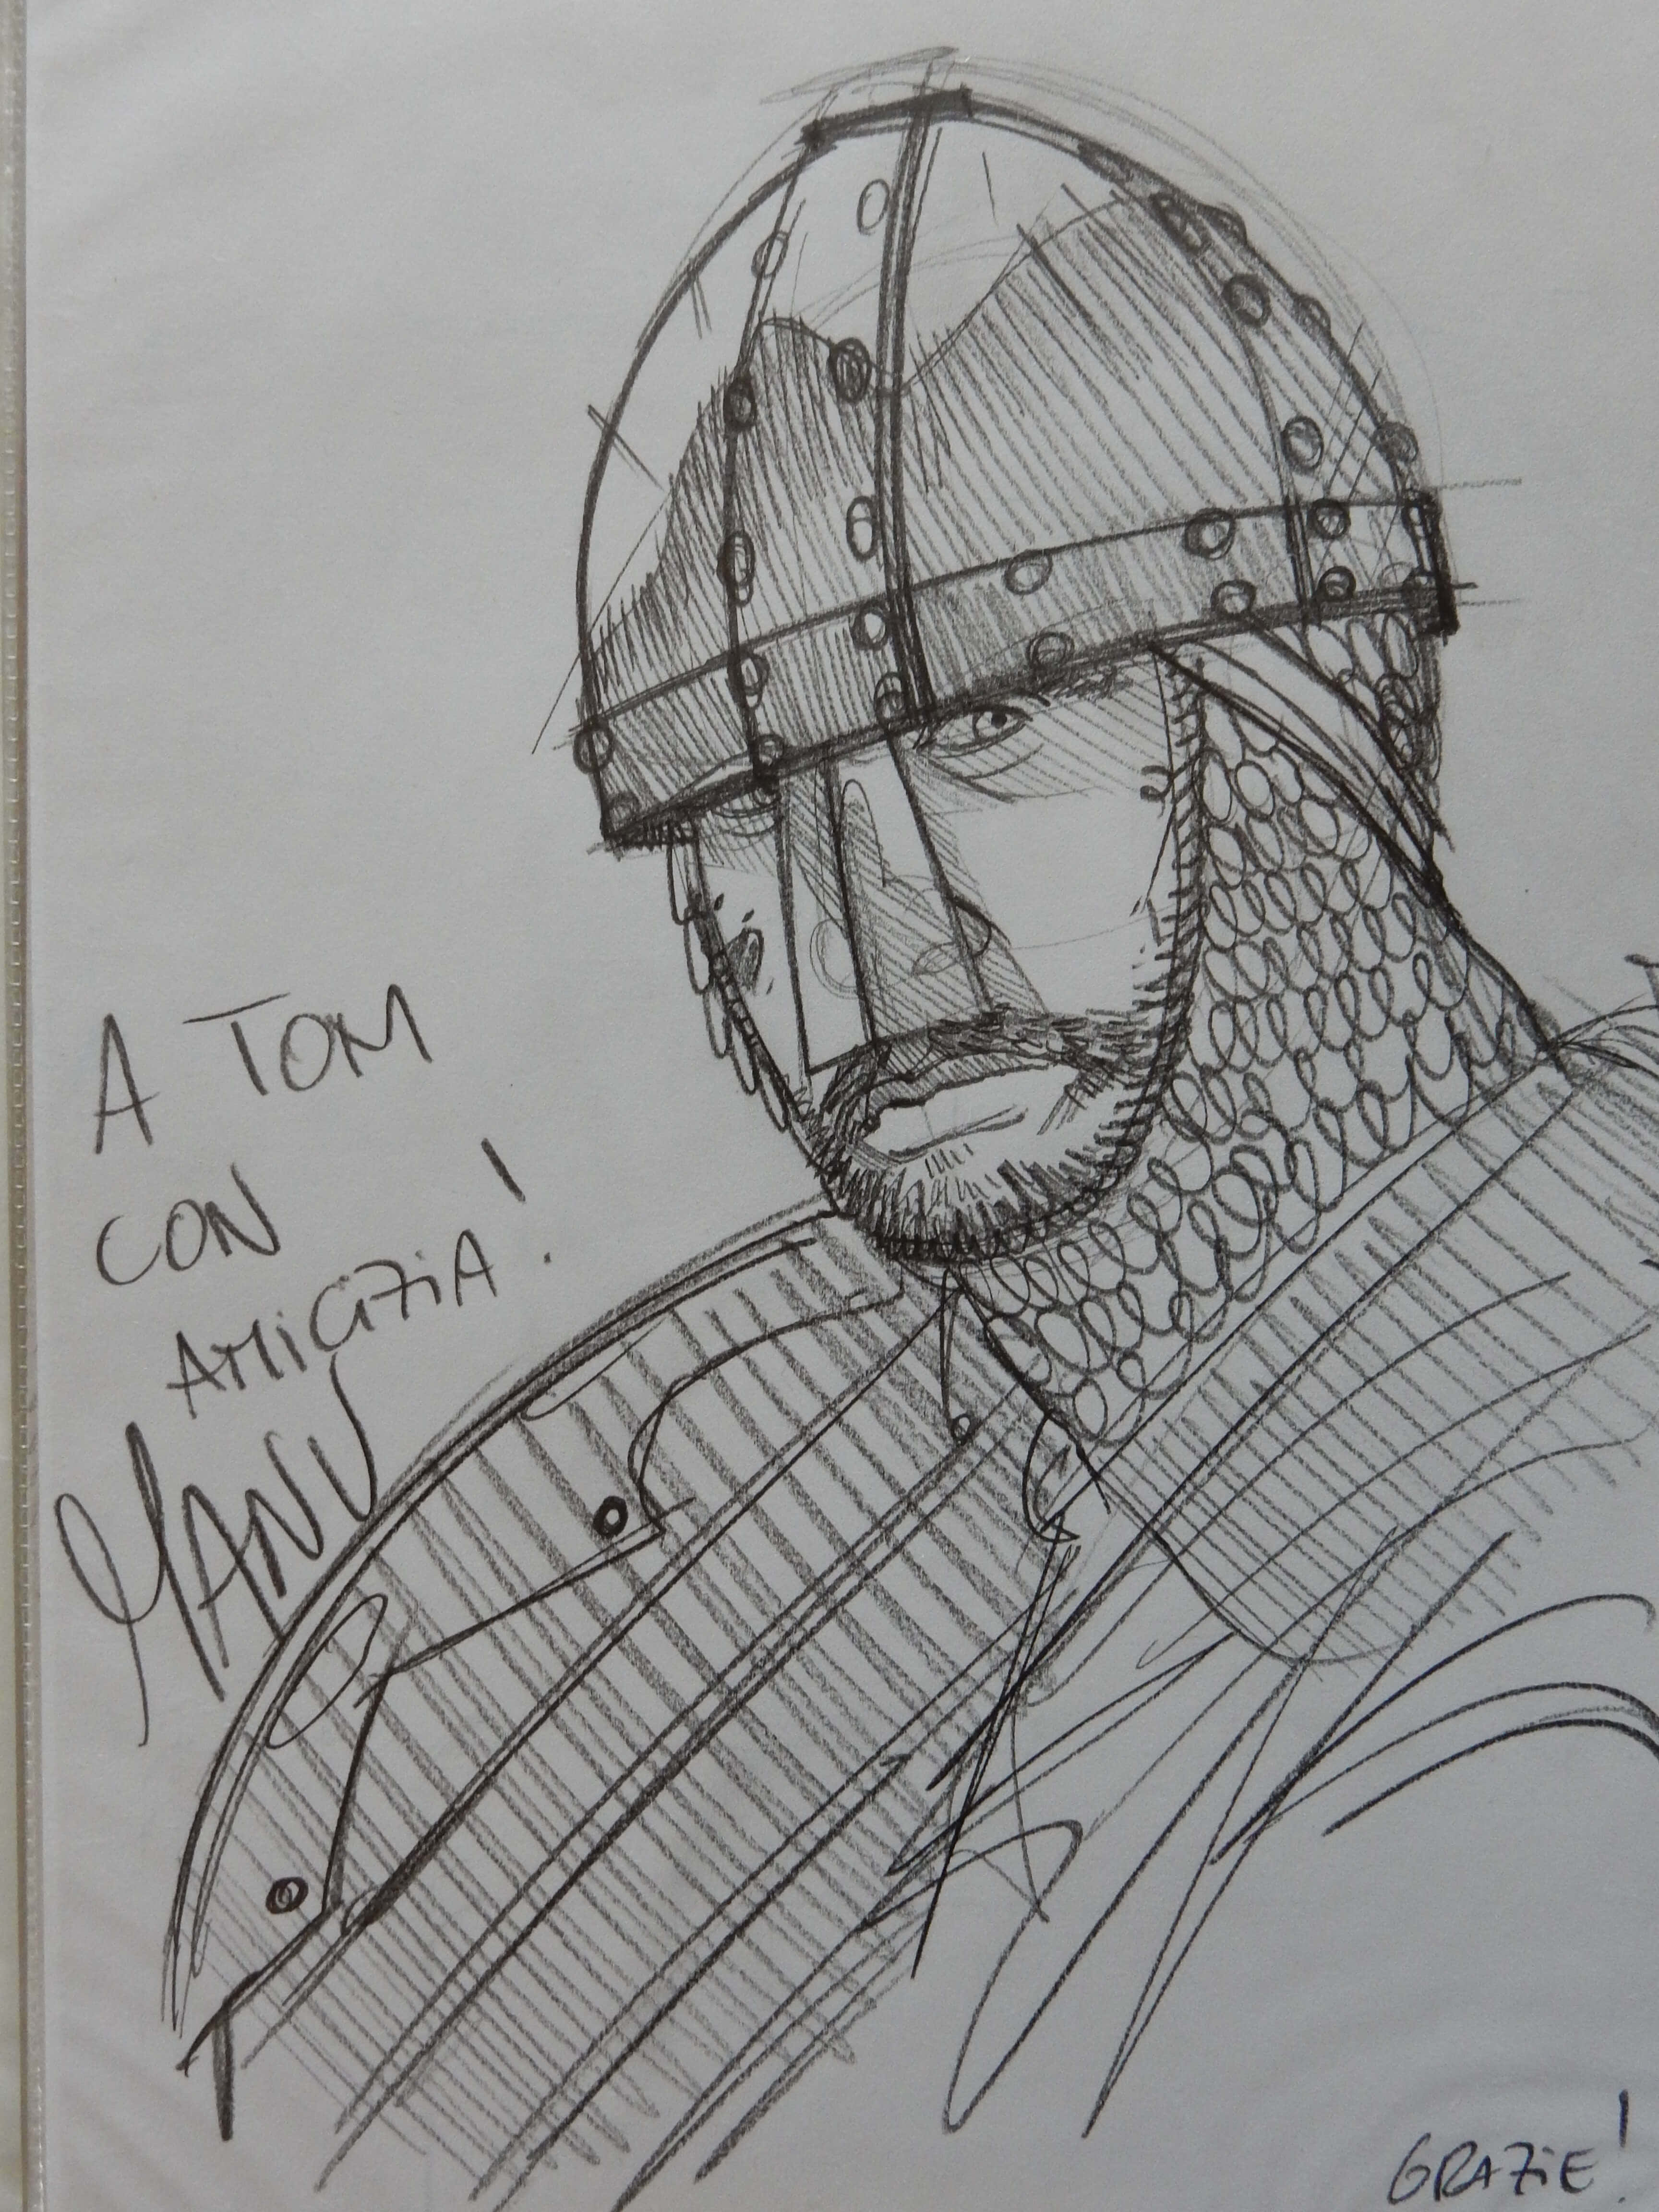 A TOM
CON
AMICIZIA!
MANU
GRAZIE!